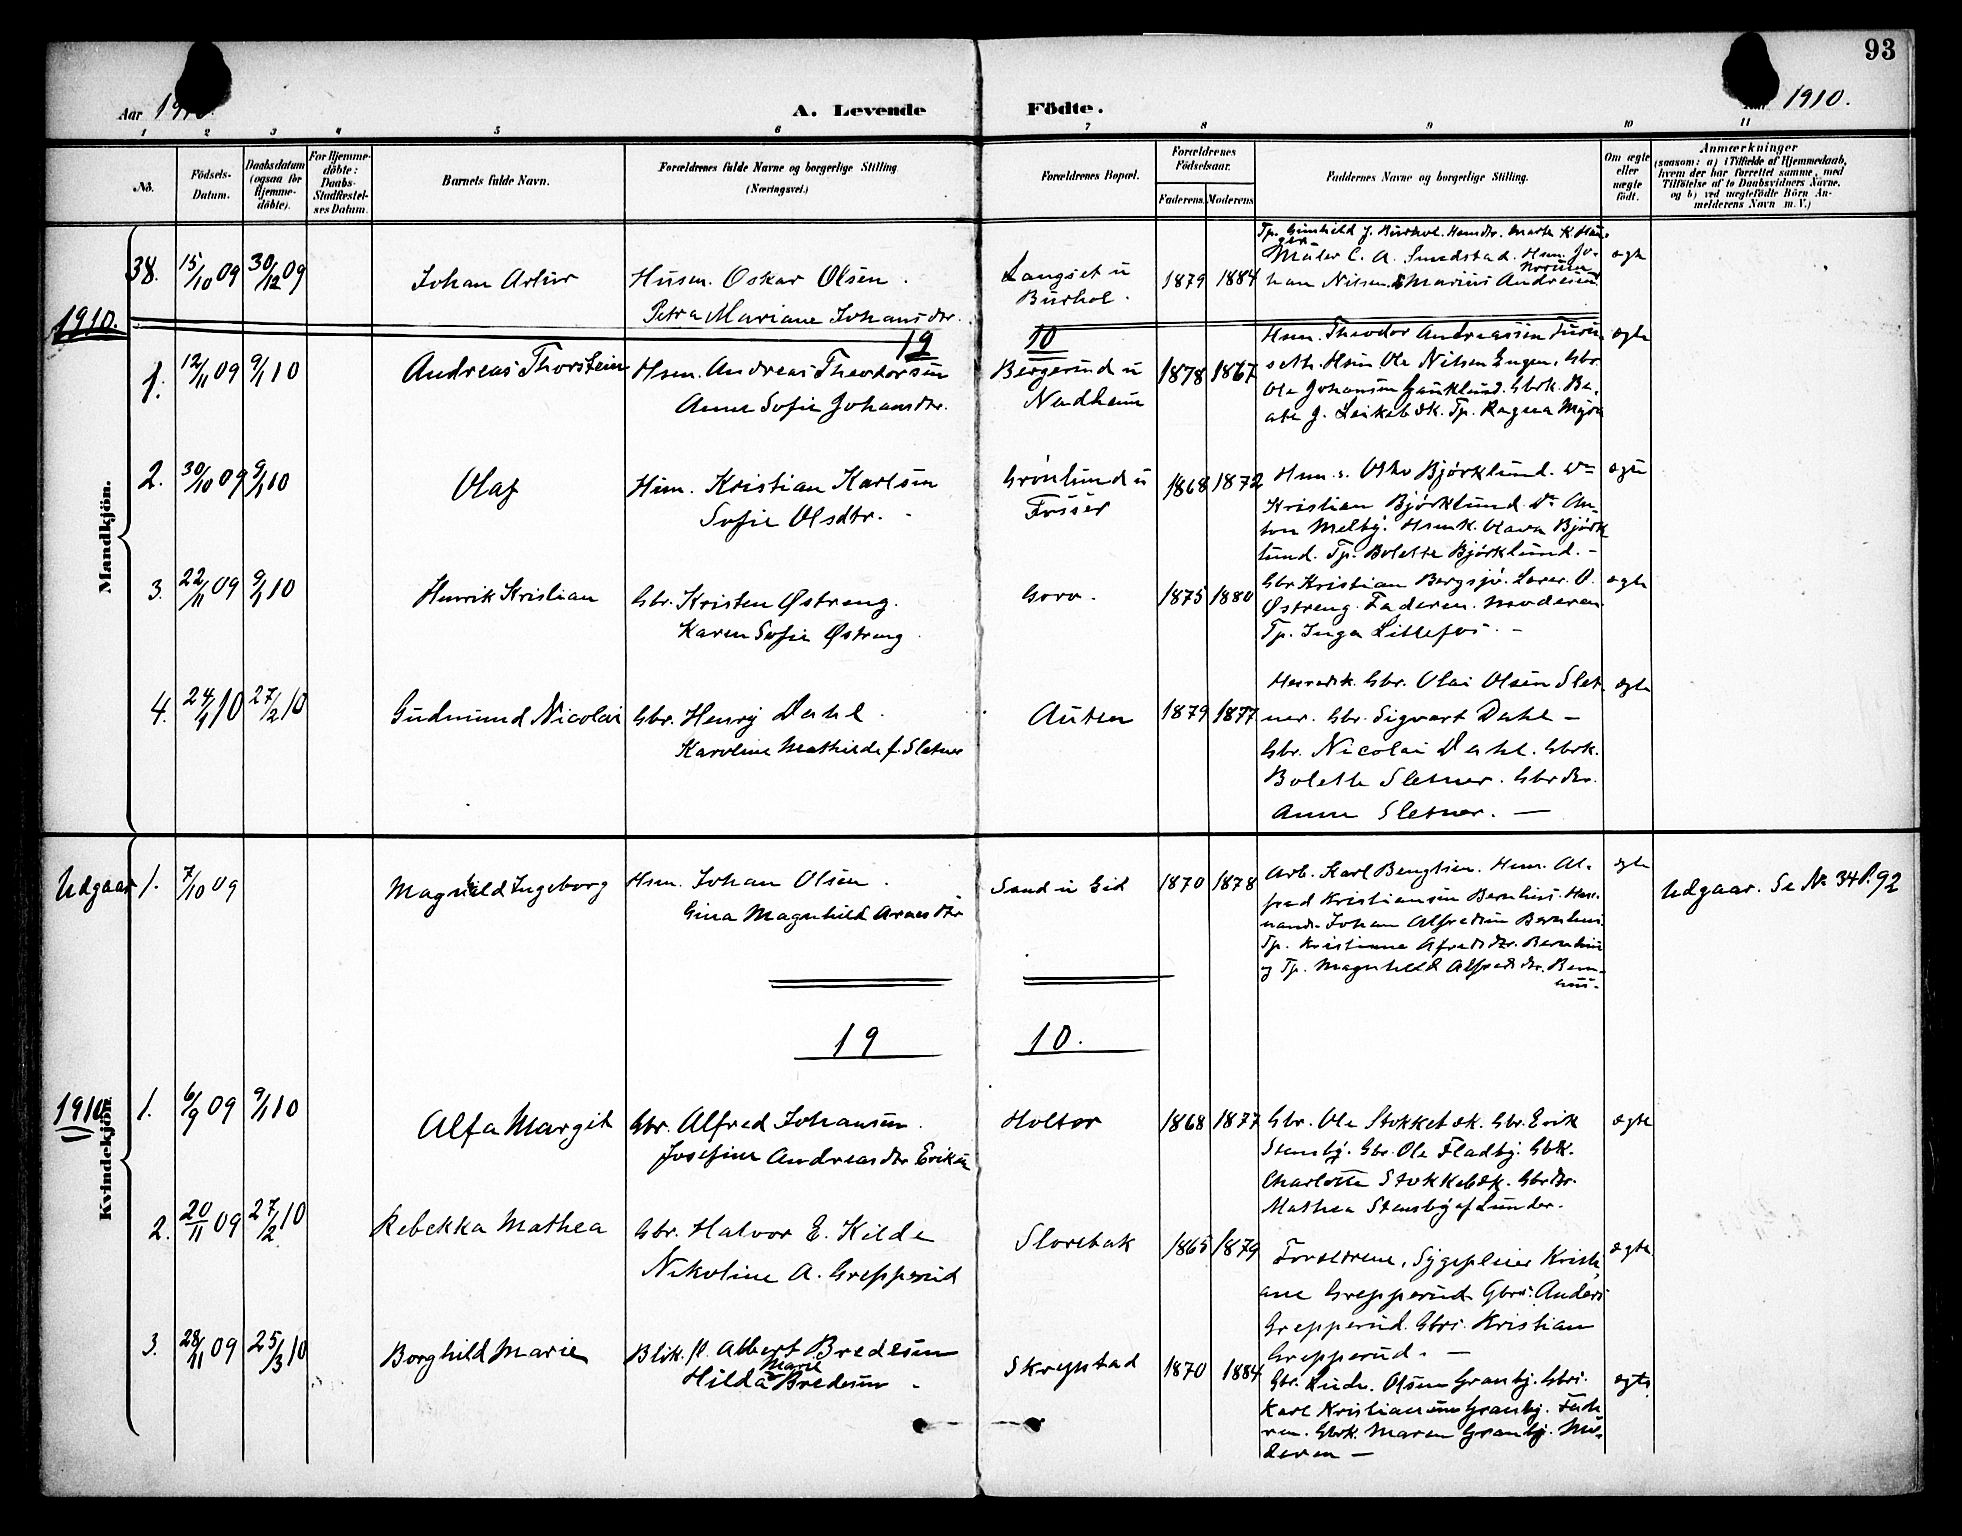 93
Aar 19
A. Levende
Födte.
1910.
1 2 3 4 5 6 7 8 9 10 11
No.
Födsels-Datum.
Daabsdatum (ogsaa for Hjemme-döbte).
For Hjemme-döbte: Daabs-Stadfæstel-ses Datum.
Barnets fulde Navn.
Forældrenes fulde Navne og borgerlige Stilling (Næringsvei.)
Forældrenes Bopæl.
Forældrenes Födselsaar.
Faderens. Moderens.
Faddernes Navne og borgerlige Stilling.
Om ægte eller uægte födt.
Anmærkninger
(saasom: a) i Tilfælde af Hjemmedaab,
hvem der har forrettet samme, med
Tilföielse af to Daabsvidners Navne,
og b) ved uægtefödte Börn An-
melderens Navn m. V.)
Mandkjön.
38. 15/10 09 30/12 09 Johan Artur
Husm. Oskar Olsen.
Petra Mariane Johansdtr.
Langset u
Burhol.
1879 1884
Maler C. A. Smedstad. Hsm. Jo-
han Nilsen. Marius Andresen
ægte
1910.
19
10
1. 12/11 09 9/1 10 Andreas Thorstein
Hsm. Andreas Theodorsen
Anne Sofie Johansdtr.
Bergerud u
Nadheim
1878 1867
Hsm. Theodor Andreassen Furu
seth. Hsm Ole Nilsen Engen. Gbr.
Ole Johansen Gauklund. Gbrk. Be-
ate J. Leikebæk. Tp. Ragna Myra
ægte
2. 30/10 09 9/1 10 Olaf
Hsm. Kristian Karlsen
Sofie Olsdtr.
Grönlund u
Fosser
1868 1872
Hsm. s. Otto Björklund. Do
Kristian Björklund. Do An-
ton Melby. Hsmk. Olava Björk
lund. Tp. Bolette Björklund. -
ægte
3. 22/11 09 9/1 10 Henrik Kristian
Gbr. Kristen Østreng.
Karen Sofie Østreng.
Goro.
1875 1880
Gbr Kristian Bergsjö. Lærer O.
Østreng. Faderen. Moderen
Tp. Inga Lillefos. -
ægte
4. 24/1 10 27/2 10 Gudmund Nicolai
Gbr. Henry Dahl.
Karoline Mathilde f. Sletner
Auten
1879 1877
Herredsk. Gbr. Olai Olsen Slet-
ner. Gbr. Sigvart Dahl -
Gbr. Nicolai Dahl. Gbrk.
Bolette Sletner. Gbrdtr.
Anna Sletner. -
ægte
Kvindekjön.
Udgaar 1. 7/10 09 Magnhild Ingeborg
Hsm. Johan Olsen.
Gina Magnhild Arnesdtr
Sand u Eid
1870 1878
Arb. Karl Bengtsen. Hsm. Al-
fred Kristiansen Bernhus.
Johan Alfredsen Bernhus.
Tp. Kristianne Alfredsdtr. Bernhus
og Tp. Magnhild Alfredsdtr. Bern-
hus.
ægte
Udgaar. Se No 34 P. 92
19
10.
1910
1. 6/9 09 9/1 10 Alfa Margit
Gbr. Alfred Johansen.
Josefine Andreasdtr Eriksen
Holtor
1868 1877
Gbr. Ole Stokkebæk. Gbr. Erik
Stensby. Gbr. Ole Fladby. Gbk.
Charlotte Stokkebæk. Gbrdtr.
Mathea Stensby af Lunder.
ægte
2. 20/11 09 27/2 10 Rebekka Mathea
Gbr. Halvor E. Kilde
Nikoline A. Grepperud
Slorebak
1865 1879
Forældrene, Sygepleier Kristi-
ane Grepperud. Gbrs. Anders
Grepperud. Gbrs. Kristian
Grepperud. -
ægte
3. 28/11 09 25/3 10 Borghild Marie
Blik. sl. Albert Bredesen
Hilda Marie Bredesen.
Skrepstad
1870 1884
Gbr. Ludv. Olsen Granby. Gbrs.
Karl Kristiansen Granby. Fade
ren. Gbrk. Maren Granby. Mo-
deren -
ægte